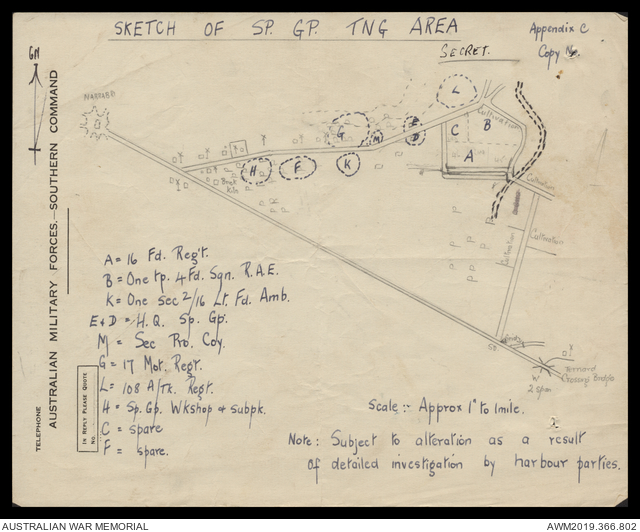 SKETCH OF SP. GP. TNG AREA
Appendix C
SECRET.
Copy No.
GN
AUSTRALIAN MILITARY FORCES.—SOUTHERN COMMAND
TELEPHONE
IN REPLY PLEASE QUOTE
No.
L
Cultivation
C
B
A
G
M
E
D
H
F
K
Brick
Kiln
Cultivation
Cultivation
Cultivation
W
2 span
Crossing Bridge
A = 16 Fd. Regt.
B = One tp. 4 Fd. Sqn. R.A.E.
K = One sec 2/16 Lt. Fd. Amb.
E & D = H.Q. Sp. Gp.
M = Sec Pro. Coy.
G = 17 Mot. Regt.
L = 108 A/Tk. Regt.
H = Sp. Gp. Wkshop & subpk.
C = spare
F = spare.
Scale :- Approx 1" to 1mile.
Note: Subject to alteration as a result
of detailed investigation by harbour parties.
AUSTRALIAN WAR MEMORIAL
AWM2019.366.802